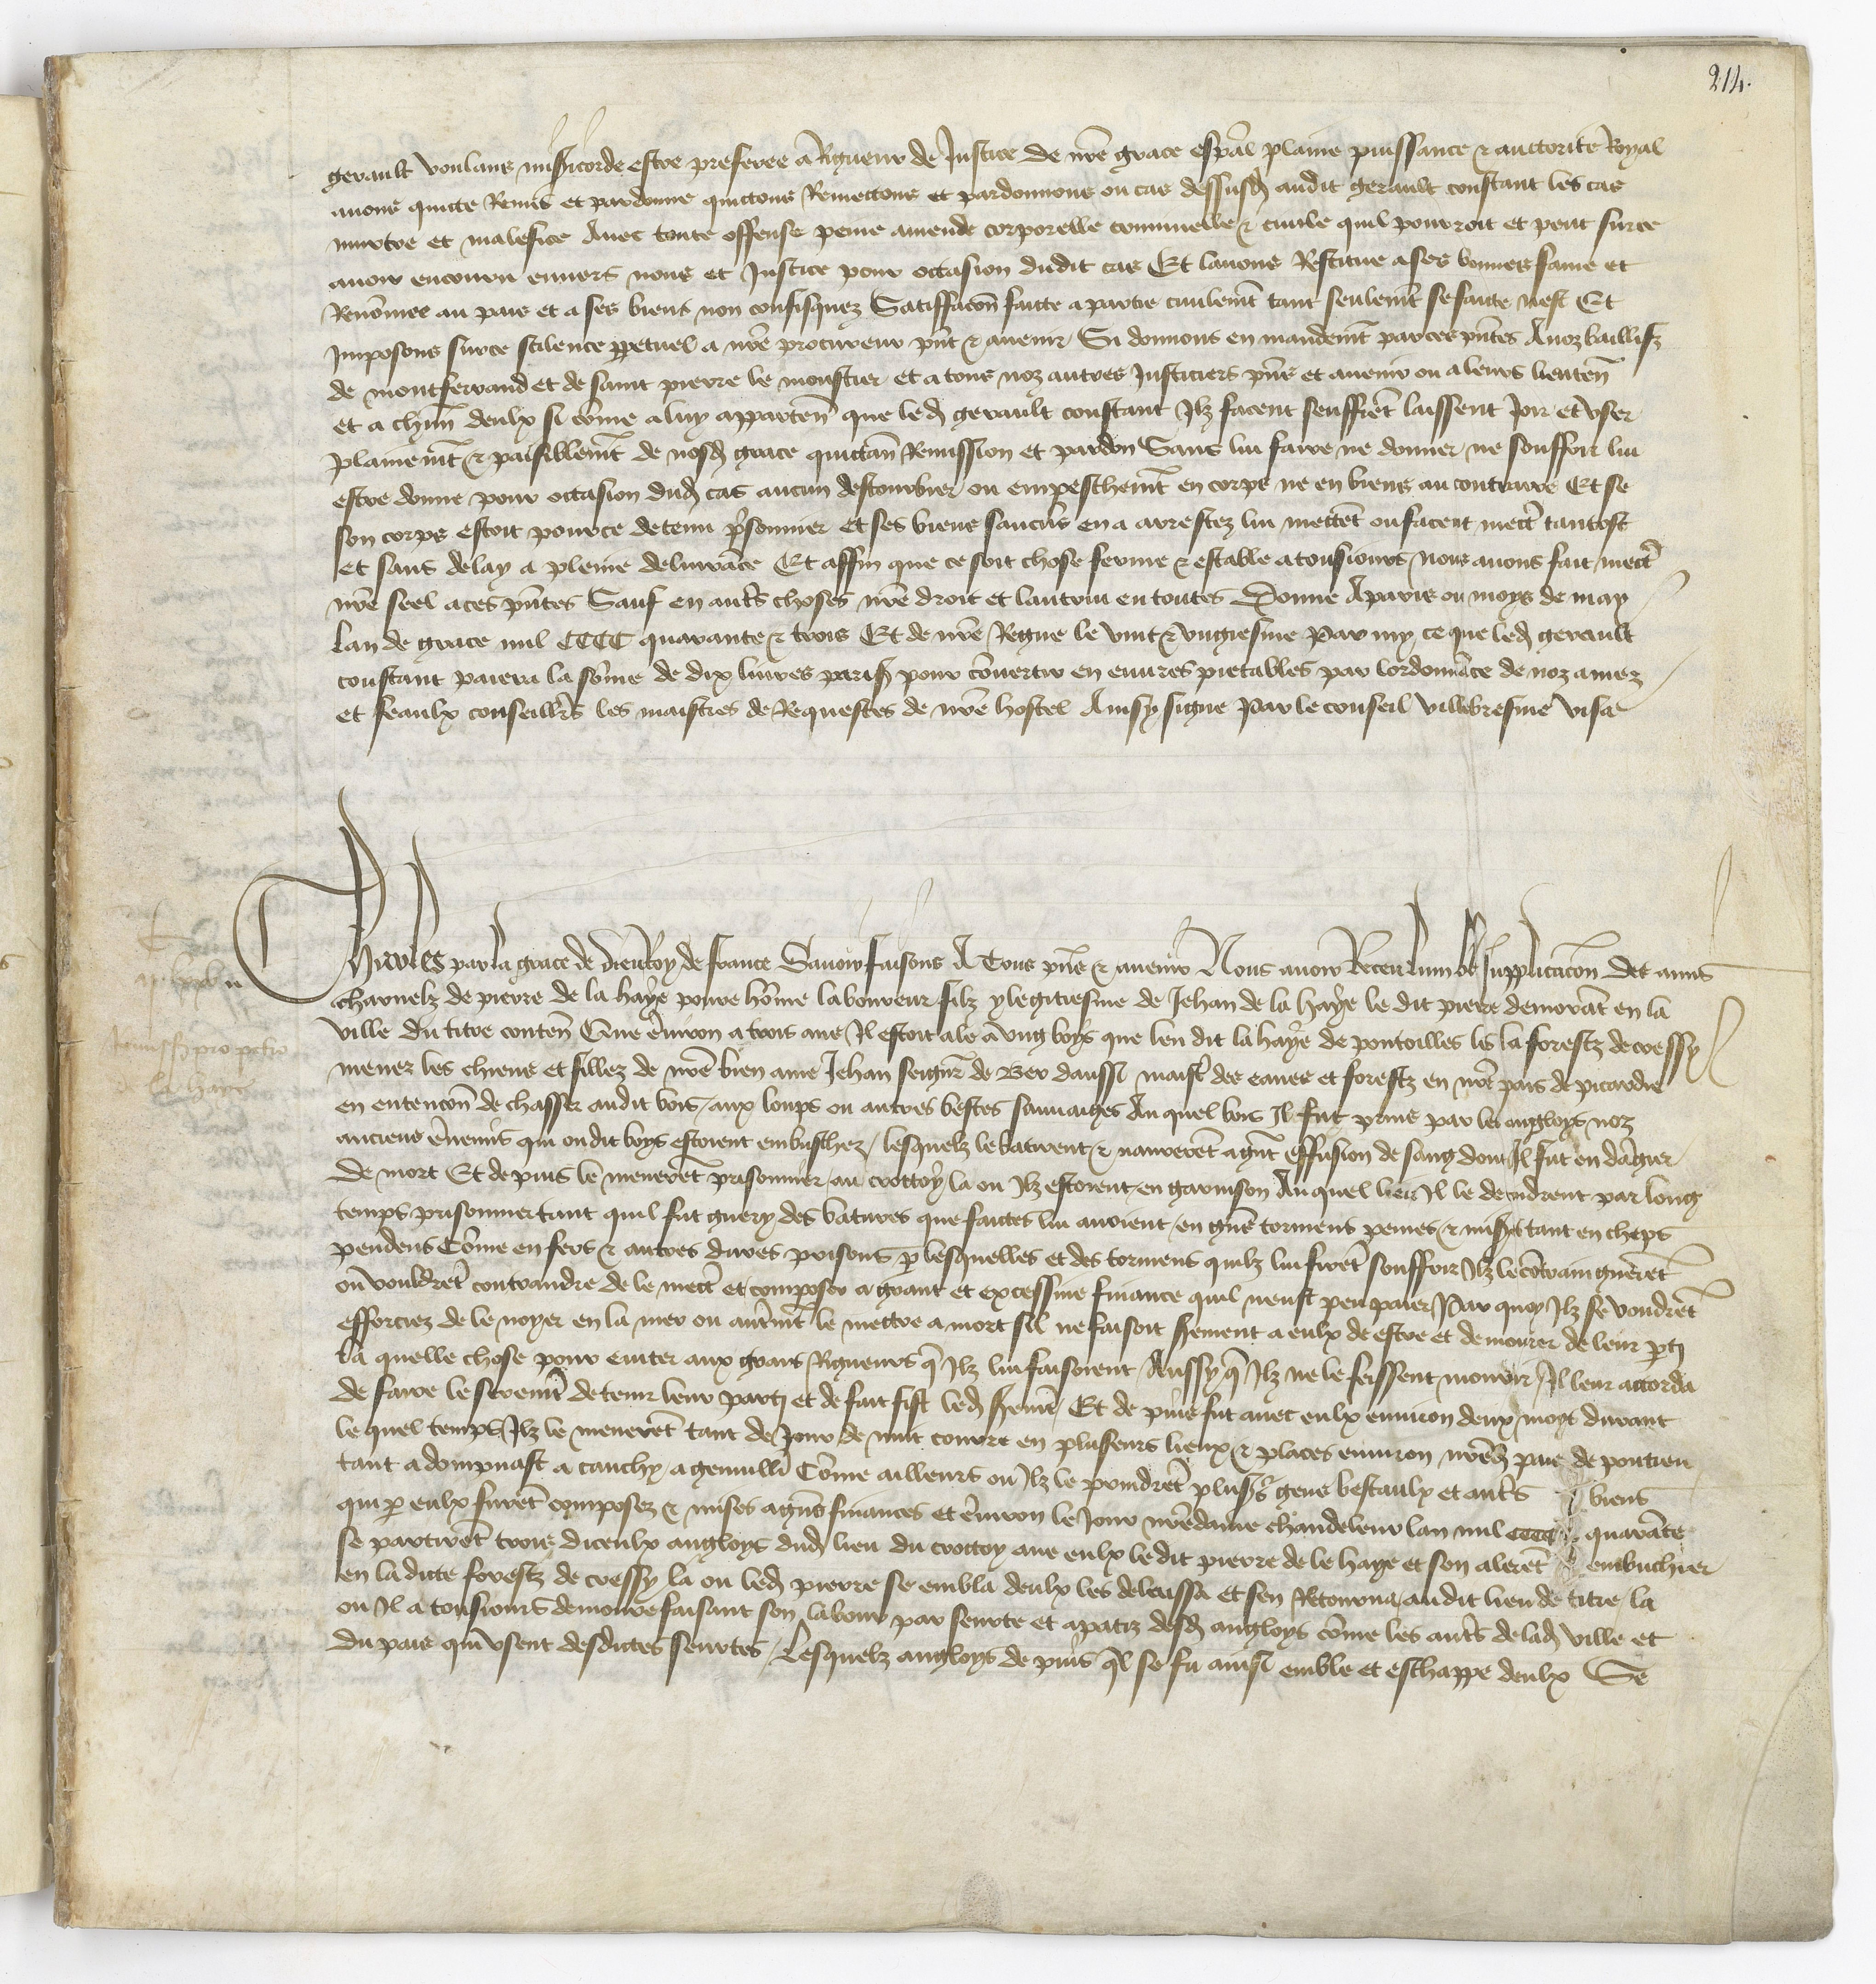 214.
gerault voulans misericorde estre preferee a Rigueur de Justice de nre grace espal plaine puissance & auctorite Royal
avons quicte Remis et pardonne quictons Remectons et pardonnons ou cas dessusd audit gerault constant les cas
murtre et malefice Avec toute offense peine amende corporelle criminelle & civile quil pourroit et peut surce
avoir encouru envers nous et Justice pour occasion dudit cas Et lavons Restitue a ses bonnes fame et
Renōmee au pais et a ses biens non confisquez Satiffacōn faicte a partie civilemt tant seulemt se faicte nest Et
Imposons surce scilence ppetuel a nre procureur pnt & avenir Si donnons en mandemt par ces pntes Anoz baillifz
de montferrand et de saint pierre le moustier et a tous noz autres Justiciers pns et avenir ou a leurs lieuten
et a chun deulx si cōme a luy apparten que led gerault constant Ilz facent seuffret laissent Joir et user
plainemt & paisiblemt de nosd grace quictan Remission et pardon Sans lui faire ne donner ne souffrir lui
estre donne pour occasion dud cas aucun destourbier ou empeschemt en corps ne en biens au contraire Et se
son corps estoit pource detenu prsonnier et ses biens saucus en a arrestez lui mectet ou facent mectr tantost
et sans delay a pleine delivrāce Et affin que ce soit chose ferme & estable atousiours nous avons fait mectr
nre seel aces pntes Sauf en auts choses nre droit et lautrui en toutes Donne Aparis ou moys de may
Lan de grace mil CCCC quarante & trois Et de nre Regne le vint & ungiesme Par my ce que led gerault
constant paiera la sōme de dix livres paris pour cōvertir en euvres pietables par lordonnāce de noz amez
et feaulx conseillrs les maistres de Requestes de nre hostel Ainsy signe Par le conseil villebresme visa
Charles par la grace de dieu Roy de france Savoir faisons A Tous pns & avenir Nous avoir Receu lumble supplicacōn des amis
charnelz de pierre de la haye povre hōme laboureur filz ylegitiesme de Jehan de la haye le dit pierre demorāt en la
ville du titre conten Que ēviron a trois ans Il estoit ale a ung boys que len dit la haye de pontoilles les la forestz de cressy
remiss pro petro
de la haye
mener les chiens et fillez de nre bien ame Jehan seignr de Ber daussi maistr des eaues et forestz en nre pais de picardie
en entencōn de chasser audit bois aux loups ou autres bestes sauvaiges Au quel bois Il fut prins par les angloys noz
anciens ēnemis qui ou dit boys estoient embuschez lesquelz le batirent & navreret a gnt effusion de sang dont Il fut en dāgier
de mort Et depuis le meneret prisonnier au crottoy la ou Ilz estoient en garnison Au quel lieu Il le detindrent par long
temps prisonnier tant quil fut guery des batures que faictes lui avoient en gns tormens peines & mises tant en cheps
pendens Cōme en fers & autres dures prisons p lesquelles et des tormens quilz lui firet souffrir Ilz le cōtraingneret
ou vouldret contraindre de le mectr et composer a grant et excessive finance quil neust peu paier Par quoy Ilz se voudret
efforciez de le noyer en la mer ou autremt le mettre a mort sil ne faisoit srement a eulx de estre et demourer de leur pti
La quelle chose pour eviter aux grans Rigueurs q Ilz lui faisoient Aussy q Ilz ne le feissent mourir Il leur accorda
de faire le seremt de tenir leur parti et de fait fist led sremt Et de puis fut avec eulx environ deux moys durant
le quel temps Ilz le meneret tant de Jour de nuit courre en plusieurs lieux & places environ nred pais de pontieu
tant a dompnast a cauchy a genvilli Cōme ailleurs ou Ilz le prindret pluss gens bestaulx et auts biens
qui p eulx furet composez & mises a gns finances et ēviron le Jour nredame chandeleur lan mil CCCC quarāte
se partiret trois diceulx angloys dud lieu du crottoy ave eulx le dit pierre de le haye et son aleret embuchier
en ladicte forestz de cressy la ou led pierre se embla deulx les delaissa et sen Retourna audit lieu de titre la
ou Il a tousiours demoure faisant son labour par seurte et apatiz desd angloys cōme les auts de lad ville et
du pais qui usent desdictes seurtes Lesquelz angloys de puis ql se fu ainsi emble et eschappe deulx Se